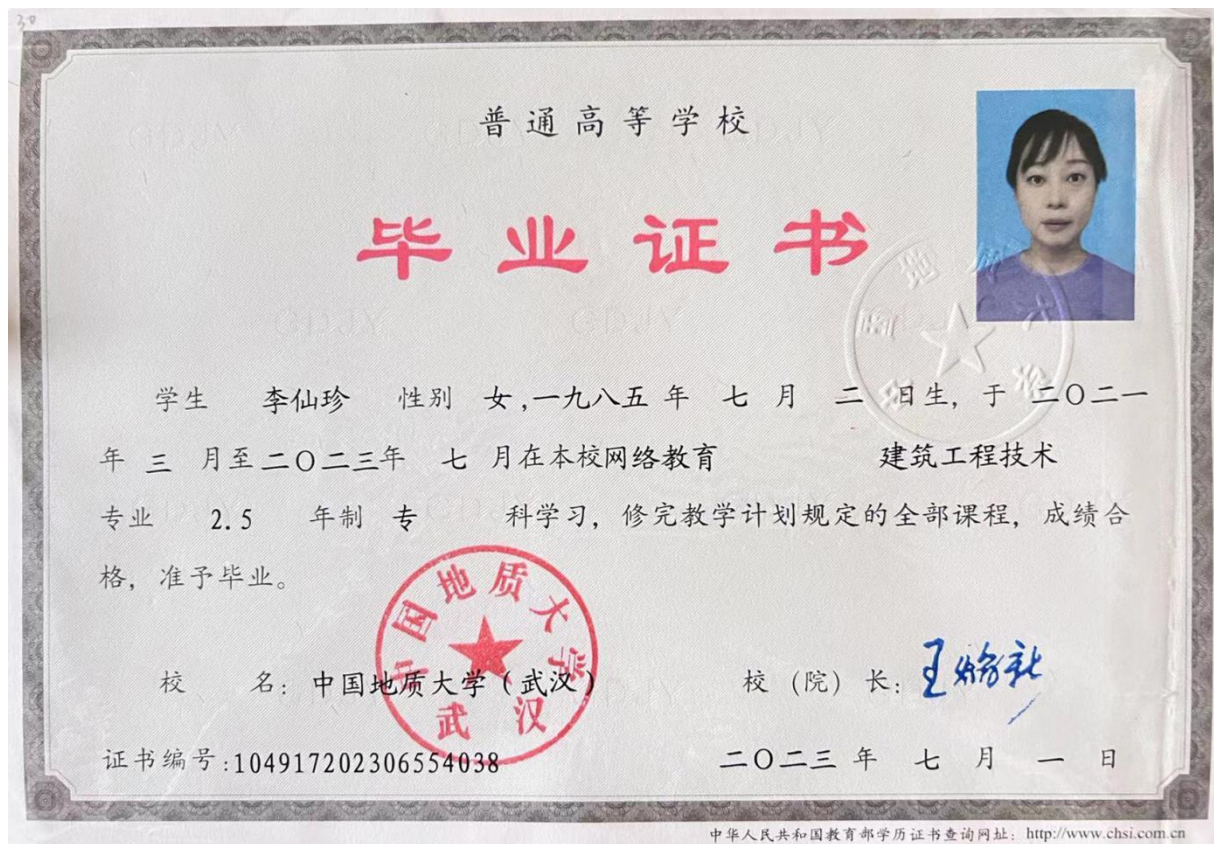 30
普通高等学校
毕业证书
学生 李仙珍 性别 女,一九八五 年 七 月 二 日生, 于 二〇二一
年 三 月至二〇二三年 七 月在本校网络教育 建筑工程技术
专业 2.5 年制 专 科学习, 修完教学计划规定的全部课程, 成绩合
格, 准予毕业。
中国地质大学
武汉
校 名: 中国地质大学(武汉) 校 (院) 长:
证书编号:104917202306554038 二〇二三 年 七 月 一 日
中华人民共和国教育部学历证书查询网址: http://www.chsi.com.cn